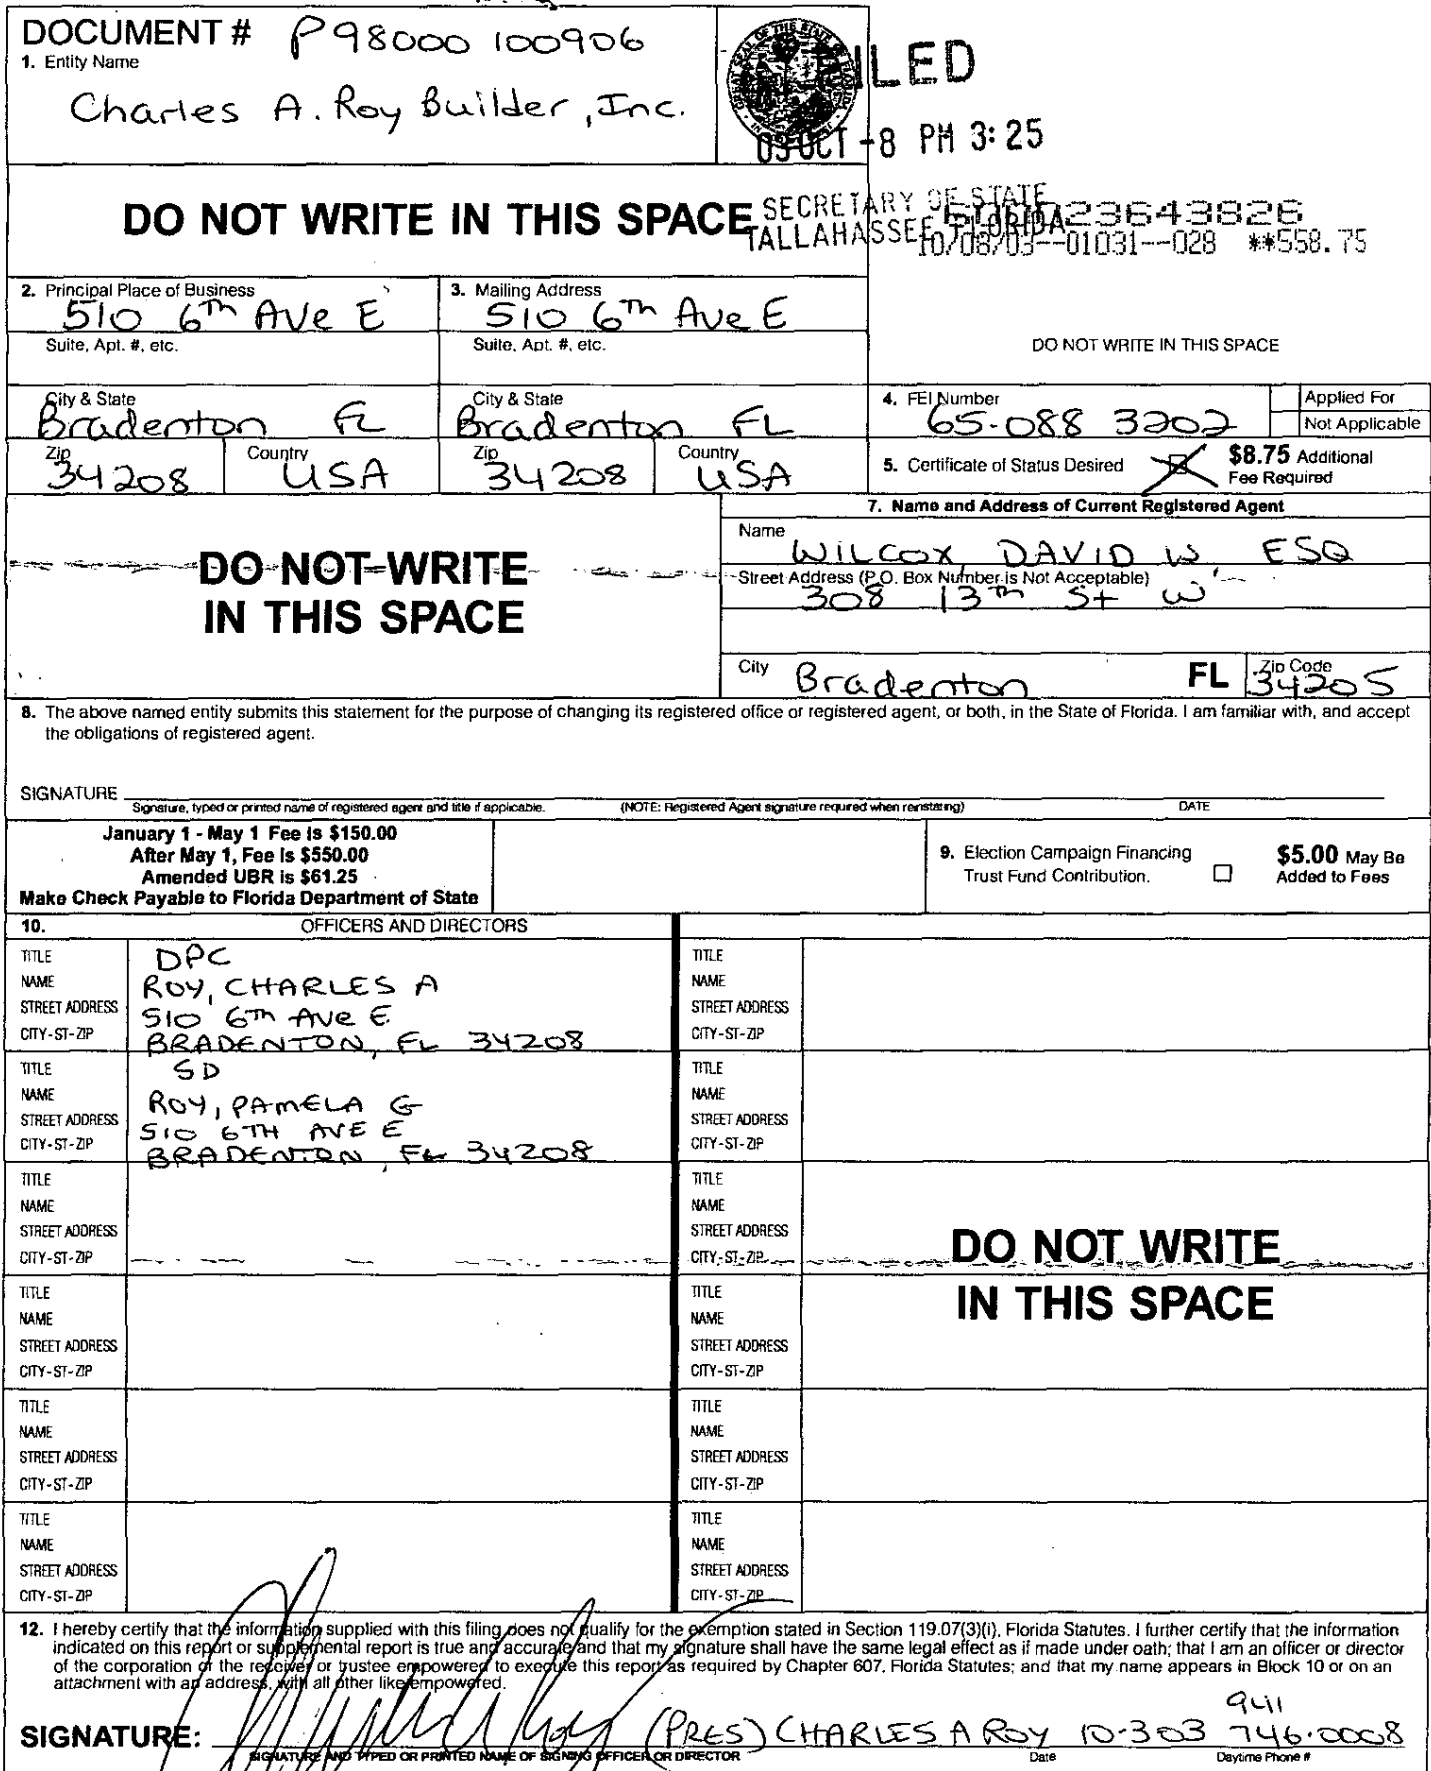 DOCUMENT # P98000100906
1. Entity Name
Charles A. Roy Builder, Inc.
FILED
03 OCT -8 PM 3:25
SECRETARY OF STATE
TALLAHASSEE, FLORIDA
23643826
10/08/03--01031--028 **558.75
DO NOT WRITE IN THIS SPACE
2. Principal Place of Business
510 6th Ave E
3. Mailing Address
510 6th Ave E
Suite, Apt. #, etc.
Suite, Apt. #, etc.
DO NOT WRITE IN THIS SPACE
City & State
Bradenton FL
City & State
Bradenton FL
4. FEI Number
65-088 3202
Applied For
Not Applicable
Zip
34208
Country
USA
Zip
34208
Country
USA
5. Certificate of Status Desired
$8.75 Additional
Fee Required
DO NOT WRITE
IN THIS SPACE
7. Name and Address of Current Registered Agent
Name
WILCOX, DAVID W. ESQ
Street Address (P.O. Box Number is Not Acceptable)
308 13th St W
City Bradenton FL Zip Code 34205
8. The above named entity submits this statement for the purpose of changing its registered office or registered agent, or both, in the State of Florida. I am familiar with, and accept
the obligations of registered agent.
SIGNATURE
Signature, typed or printed name of registered agent and title if applicable. (NOTE: Registered Agent signature required when reinstating) DATE
January 1 - May 1 Fee is $150.00
After May 1, Fee is $550.00
Amended UBR is $61.25
Make Check Payable to Florida Department of State
9. Election Campaign Financing
Trust Fund Contribution.
$5.00 May Be
Added to Fees
10. OFFICERS AND DIRECTORS
TITLE DPC
NAME ROY, CHARLES A
STREET ADDRESS 510 6th Ave E
CITY-ST-ZIP BRADENTON, FL 34208
TITLE
NAME
STREET ADDRESS
CITY-ST-ZIP
TITLE SD
NAME ROY, PAMELA G
STREET ADDRESS 510 6TH AVE E
CITY-ST-ZIP BRADENTON, FL 34208
TITLE
NAME
STREET ADDRESS
CITY-ST-ZIP
TITLE
NAME
STREET ADDRESS
CITY-ST-ZIP
TITLE
NAME
STREET ADDRESS
CITY-ST-ZIP
DO NOT WRITE
IN THIS SPACE
TITLE
NAME
STREET ADDRESS
CITY-ST-ZIP
TITLE
NAME
STREET ADDRESS
CITY-ST-ZIP
TITLE
NAME
STREET ADDRESS
CITY-ST-ZIP
TITLE
NAME
STREET ADDRESS
CITY-ST-ZIP
TITLE
NAME
STREET ADDRESS
CITY-ST-ZIP
TITLE
NAME
STREET ADDRESS
CITY-ST-ZIP
12. I hereby certify that the information supplied with this filing does not qualify for the exemption stated in Section 119.07(3)(i), Florida Statutes. I further certify that the information
indicated on this report or supplemental report is true and accurate and that my signature shall have the same legal effect as if made under oath; that I am an officer or director
of the corporation or the receiver or trustee empowered to execute this report as required by Chapter 607, Florida Statutes; and that my name appears in Block 10 or on an
attachment with an address, with all other like empowered.
941
SIGNATURE: (PRES) CHARLES A ROY 10-3 03 746-0008
SIGNATURE AND TYPED OR PRINTED NAME OF SIGNING OFFICER OR DIRECTOR Date Daytime Phone #